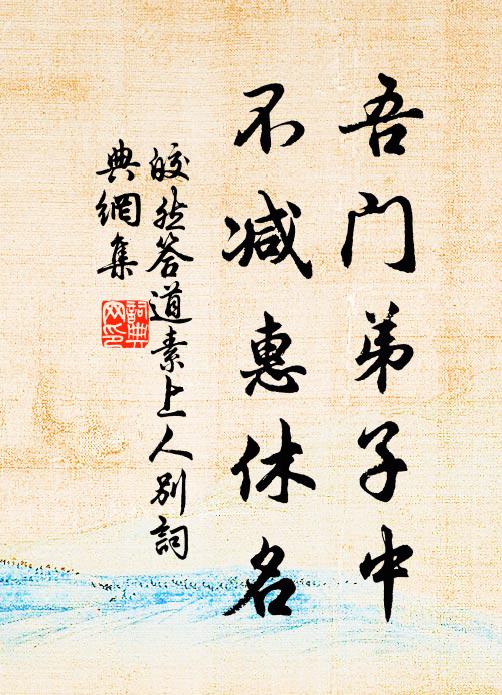 吾门弟子中
不减惠休名
皎然答道素上人别詞
典網集
詞典网印